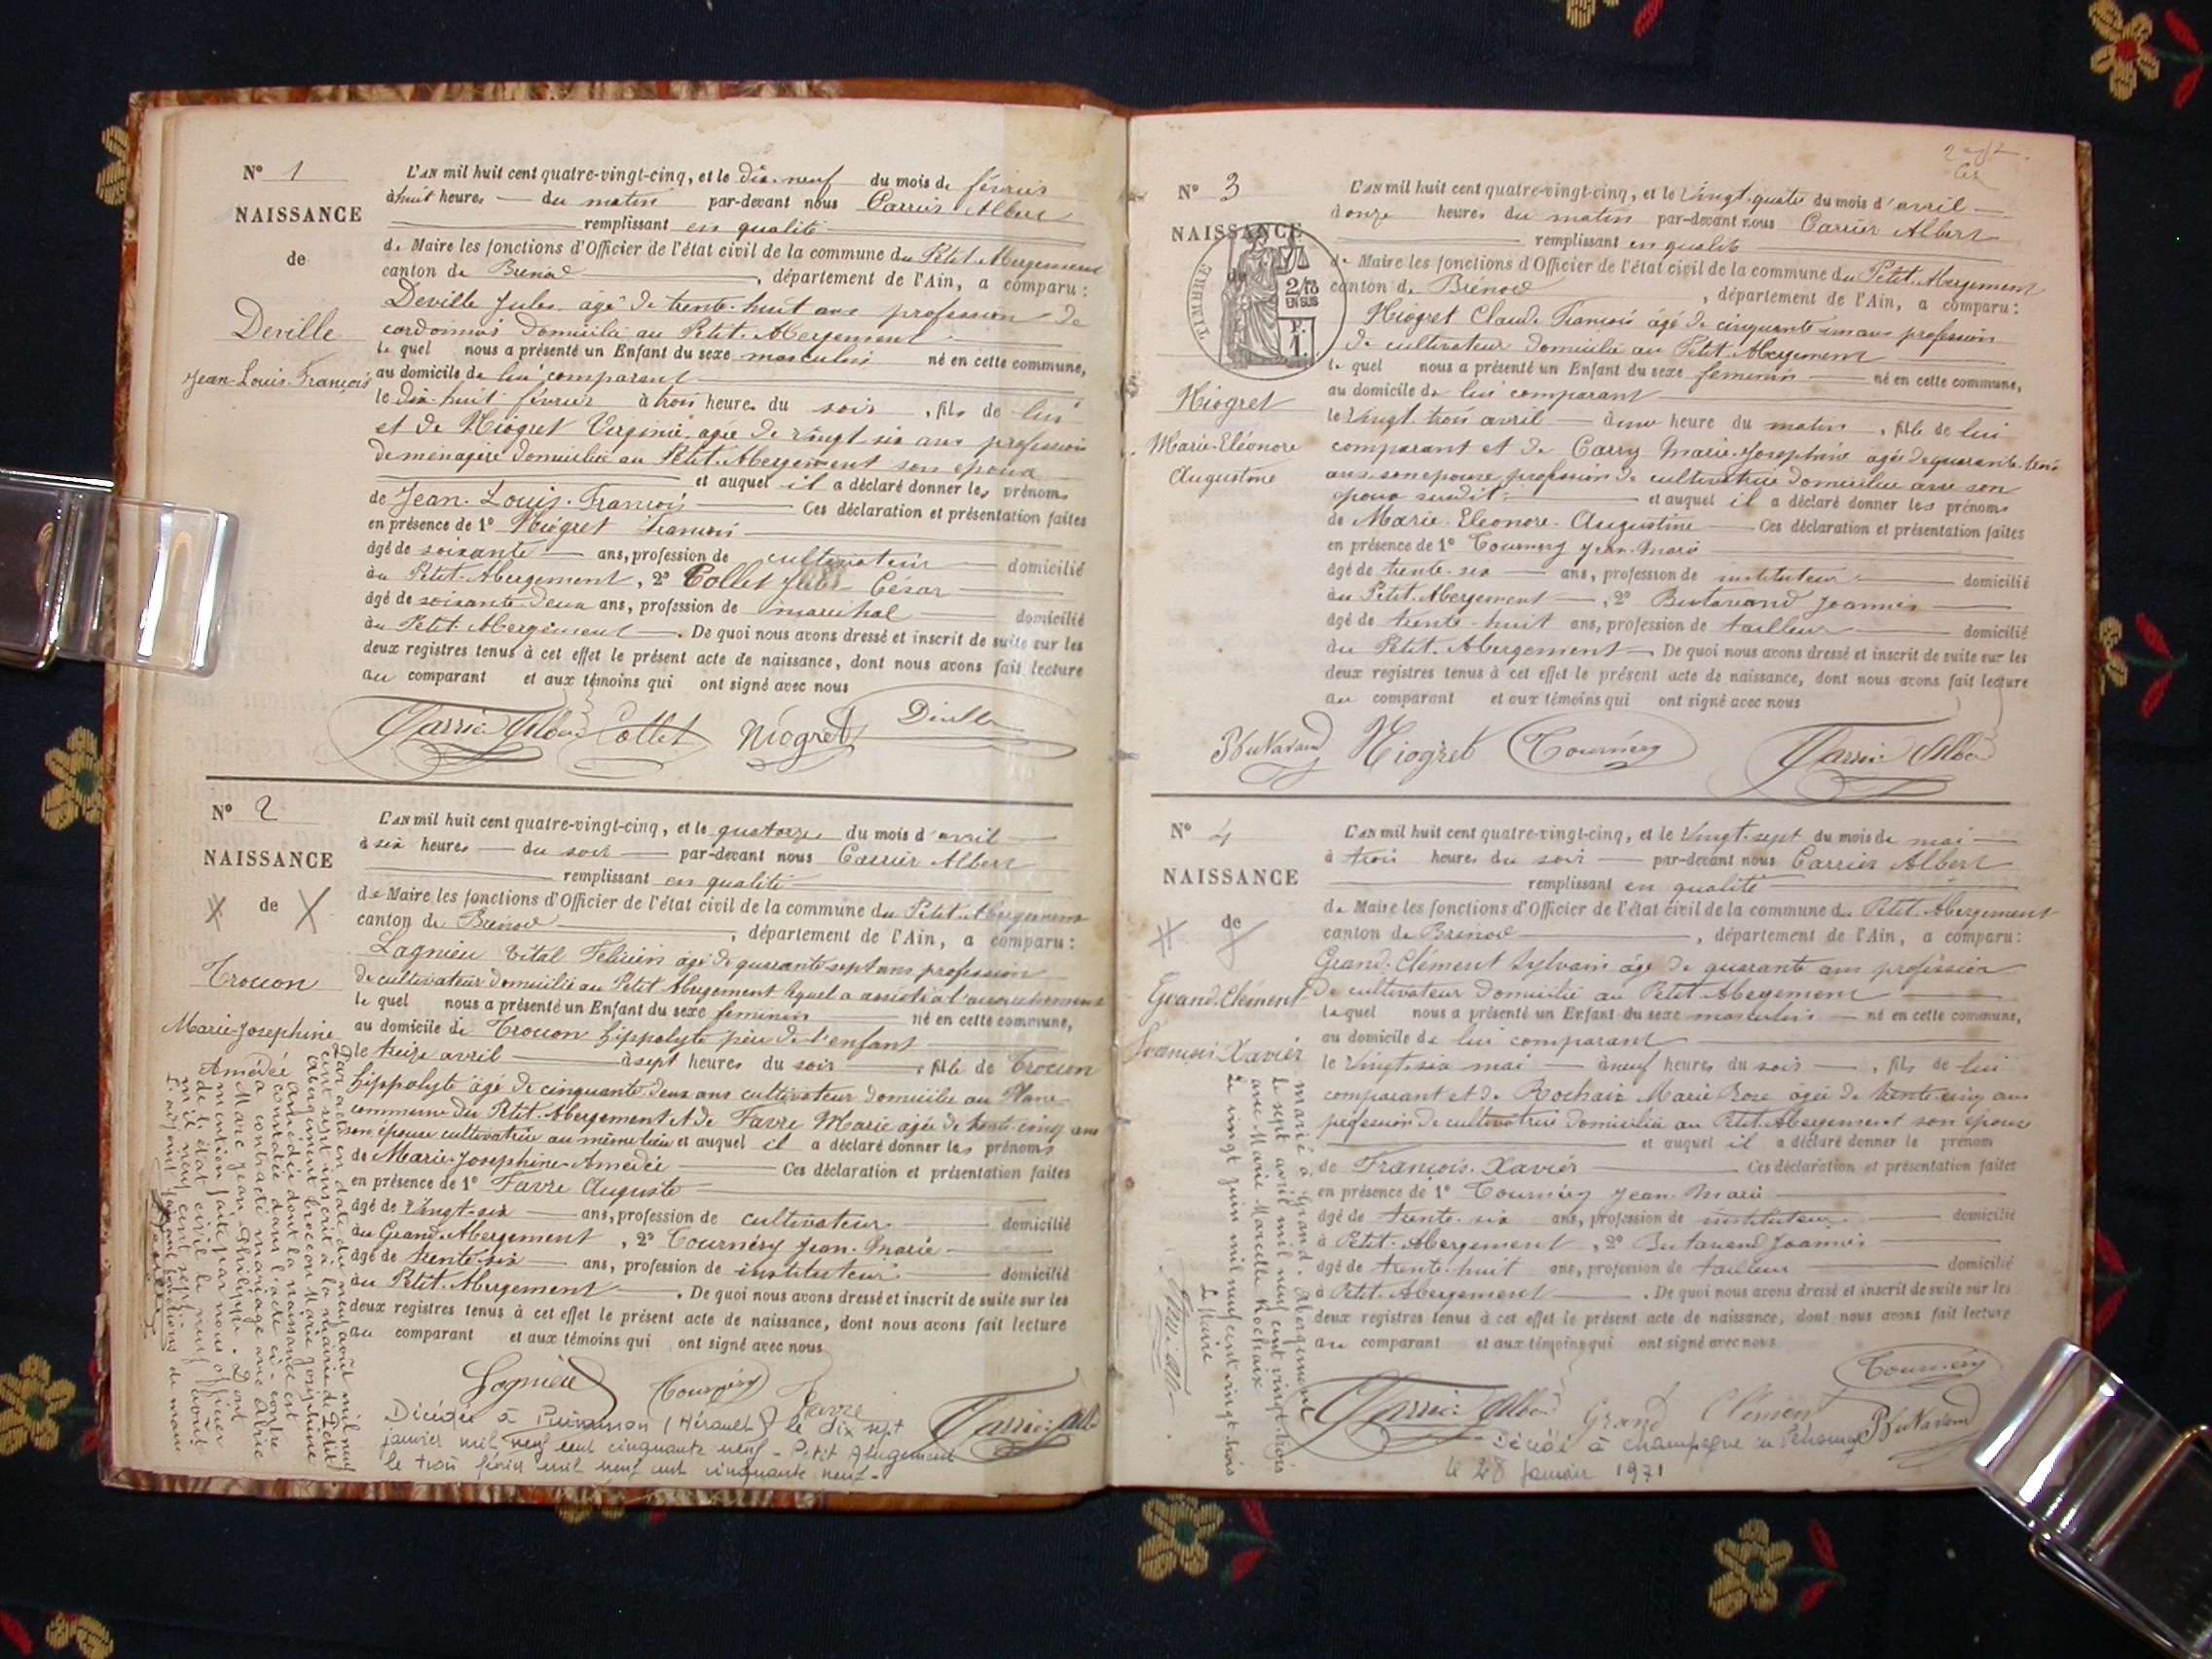 N° 1
NAISSANCE
de
Deville
Jean-Louis-François
L'AN mil huit cent quatre-vingt-cinq, et le dix-neuf du mois de février
à huit heures du matin par-devant nous Carrier Albert
remplissant en qualité
de Maire les fonctions d'Officier de l'état civil de la commune du Petit-Abergement
canton de Brénod, département de l'Ain, a comparu:
Deville Jules âgé de trente-huit ans profession de
cordonnier domicilié au Petit-Abergement
le quel nous a présenté un Enfant du sexe masculin né en cette commune,
au domicile de lui comparant
le dix huit février à trois heures du soir, fils de lui
et de Niogret Virginie, agée de vingt six ans profession
de ménagère domiciliée au Petit-Abergement son épouse
et auquel il a déclaré donner les prénoms
de Jean-Louis-François Ces déclaration et présentation faites
en présence de 1° Niogret François
âgé de soixante ans, profession de cultivateur domicilié
au Petit-Abergement, 2° Collet Jules César
âgé de soixante-deux ans, profession de maréchal domicilié
au Petit-Abergement. De quoi nous avons dressé et inscrit de suite sur les
deux registres tenus à cet effet le présent acte de naissance, dont nous avons fait lecture
au comparant et aux témoins qui ont signé avec nous
Carrier Albert Collet Niogret Deville
N° 2
NAISSANCE
de
Trocon
Marie-Josephine
Amédée
L'AN mil huit cent quatre-vingt-cinq, et le quatorze du mois d'avril
à six heures du soir par-devant nous Carrier Albert
remplissant en qualité
de Maire les fonctions d'Officier de l'état civil de la commune du Petit-Abergement
canton de Brénod, département de l'Ain, a comparu:
Lagnieu Vital Félicien âgé de quarante-sept ans profession
de cultivateur domicilié au Petit Abergement lequel a assisté à l'accouchement
le quel nous a présenté un Enfant du sexe feminin né en cette commune,
au domicile de Trocon Hippolyte père de l'enfant
le treize avril à sept heures du soir, fille de Trocon
Hippolyte âgé de cinquante-deux ans cultivateur domicilié au
commune du Petit-Abergement et de Favre Marie agée de trente-cinq ans
son épouse cultivatrice au même lieu et auquel il a déclaré donner les prénoms
de Marie-Josephine-Amédée Ces déclaration et présentation faites
en présence de 1° Favre Auguste
âgé de vingt-six ans, profession de cultivateur domicilié
au Grand-Abergement, 2° Tournéry Jean-Marie
âgé de trente-six ans, profession de instituteur domicilié
au Petit-Abergement. De quoi nous avons dressé et inscrit de suite sur les
deux registres tenus à cet effet le présent acte de naissance, dont nous avons fait lecture
au comparant et aux témoins qui ont signé avec nous
Lagnieu Tournéry Favre Carrier Albert
Par acte en date du neuf août mil neuf
cent sept inscrit à la mairie de Petit
Abergement Marie Joséphine
Amédée dont la naissance est
constatée dans l'acte ci-contre
a contracté mariage avec
Marc Jean Philippe. Dont
mention faite par nous officier
de l'état civil le neuf août
mil neuf cent sept.
L'adjoint faisant fonctions de maire
Décédée à Puisserguier (Hérault) le dix sept
janvier mil neuf cent cinquante neuf - Petit Abergement
le trois février mil neuf cent cinquante neuf -
N° 3
NAISSANCE
de
TIMBRE
2/10
EN SUS
F.
1.
Niogret
Marie-Eléonore
Augustine
L'AN mil huit cent quatre-vingt-cinq, et le vingt-quatre du mois d'avril
à onze heures du matin par-devant nous Carrier Albert
remplissant en qualité
de Maire les fonctions d'Officier de l'état civil de la commune du Petit-Abergement
canton de Brénod, département de l'Ain, a comparu:
Niogret Claude François âgé de cinquante ans profession
de cultivateur domicilié au Petit-Abergement
le quel nous a présenté un Enfant du sexe feminin né en cette commune,
au domicile de lui comparant
le vingt trois avril à une heure du matin, fille de lui
comparant et de Carry Marie-Josephine agée de quarante-trois
ans son épouse profession de cultivatrice domiciliée avec son
époux susdit et auquel il a déclaré donner les prénoms
de Marie-Eléonore-Augustine Ces déclaration et présentation faites
en présence de 1° Tournéry Jean-Marie
âgé de trente-six ans, profession de instituteur domicilié
au Petit-Abergement, 2° Butavand Joannès
âgé de trente-huit ans, profession de tailleur domicilié
au Petit-Abergement. De quoi nous avons dressé et inscrit de suite sur les
deux registres tenus à cet effet le présent acte de naissance, dont nous avons fait lecture
au comparant et aux témoins qui ont signé avec nous
Butavand Niogret Tournéry Carrier Albert
N° 4
NAISSANCE
de
Grand-Clément
François-Xavier
L'AN mil huit cent quatre-vingt-cinq, et le vingt-sept du mois de mai
à trois heures du soir par-devant nous Carrier Albert
remplissant en qualité
de Maire les fonctions d'Officier de l'état civil de la commune du Petit-Abergement
canton de Brénod, département de l'Ain, a comparu:
Grand-Clément Sylvain âgé de quarante ans profession
de cultivateur domicilié au Petit-Abergement
lequel nous a présenté un Enfant du sexe masculin né en cette commune,
au domicile de lui comparant
le vingt-six mai à neuf heures du soir, fils de lui
comparant et de Rochaix Marie Rose agée de trente-cinq ans
profession de cultivatrice domiciliée au Petit-Abergement son épouse
et auquel il a déclaré donner le prénom
de François-Xavier Ces déclaration et présentation faites
en présence de 1° Tournéry Jean-Marie
âgé de trente-six ans, profession de instituteur domicilié
à Petit-Abergement, 2° Butavand Joannès
âgé de trente-huit ans, profession de tailleur domicilié
à Petit-Abergement. De quoi nous avons dressé et inscrit de suite sur les
deux registres tenus à cet effet le présent acte de naissance, dont nous avons fait lecture
au comparant et aux témoins qui ont signé avec nous
Tournéry
Carrier Albert Grand Clément Butavand
marié à Grand-Abergement
le sept avril mil neuf cent vingt-trois
avec Marie Marcelle Rochaix
Le vingt juin mil neuf cent vingt-trois
Le Maire
Décédé à Champagne en Valromey
le 28 Janvier 1971